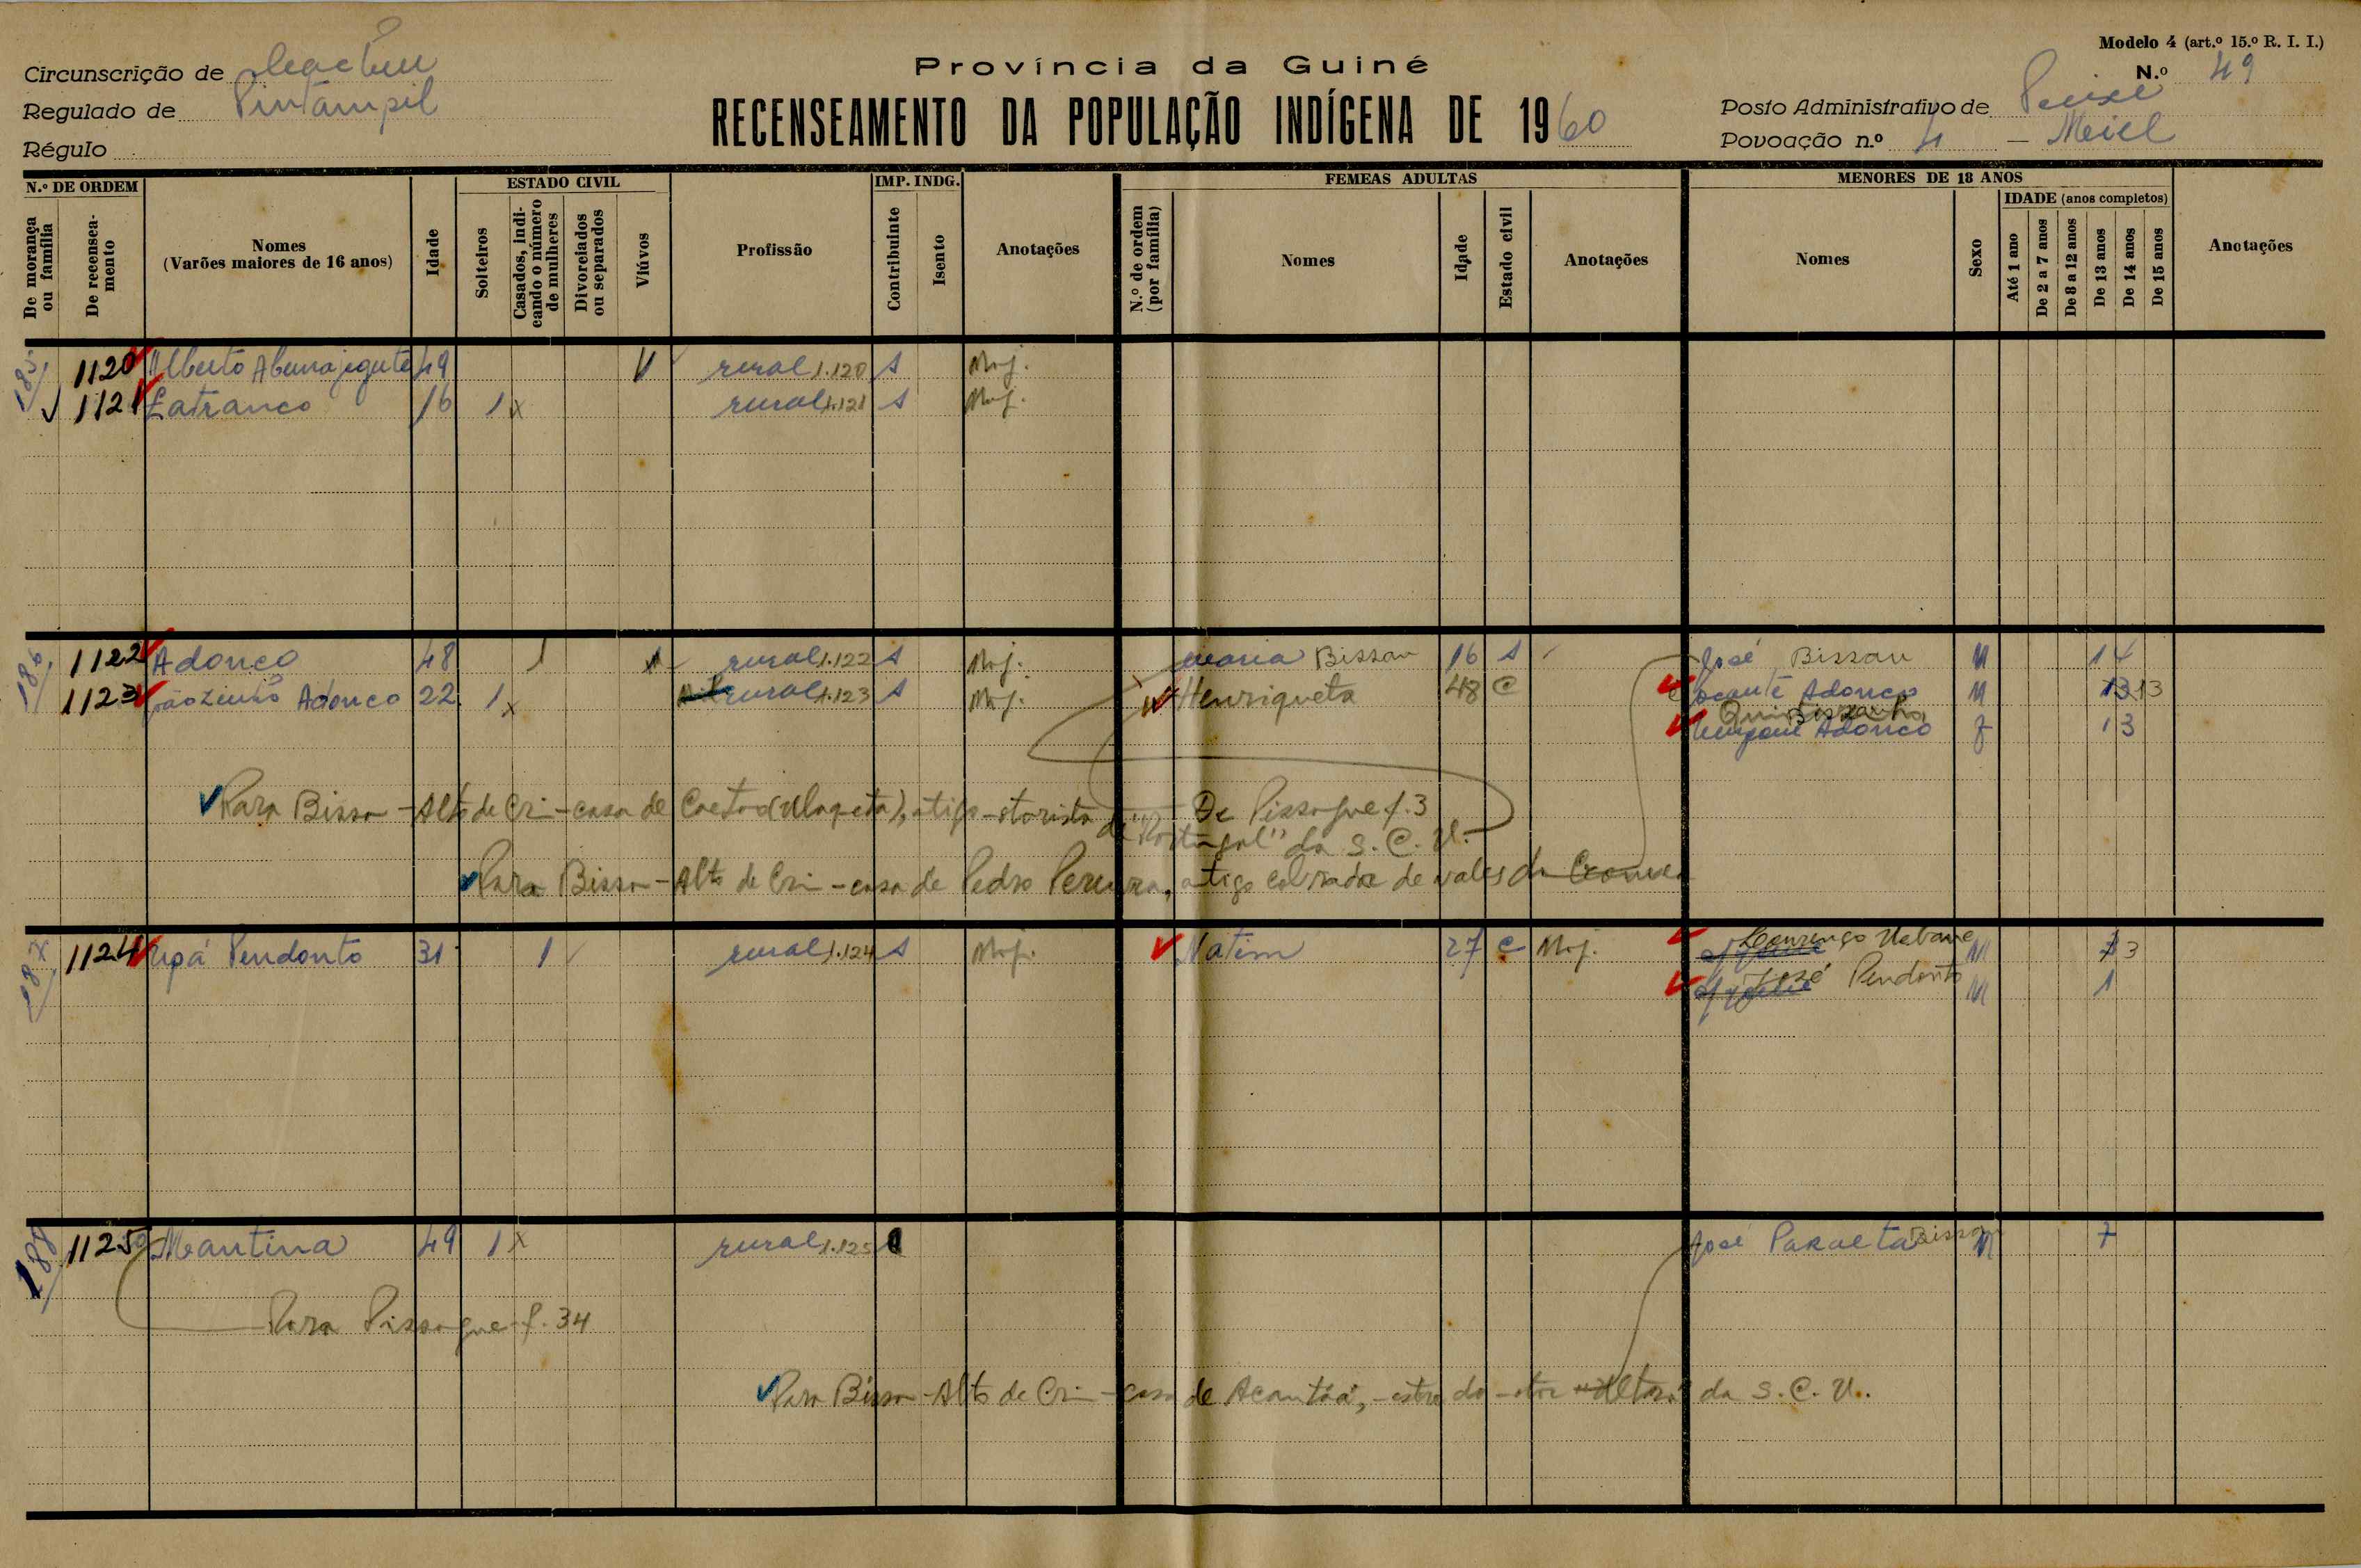 Modelo 4 (art.º 15.º R. I. I.)
Província da Guiné
N.º 49
Circunscrição de
Regulado de Pintampil
Régulo
RECENSEAMENTO DA POPULAÇÃO INDÍGENA DE 1960
Posto Administrativo de
Povoação n.º 4 –
N.º DE ORDEM
De morança ou família
De recenseamento
Nomes
(Varões maiores de 16 anos)
Idade
ESTADO CIVIL
Solteiros
Casados, indicando o número de mulheres
Divorciados ou separados
Viúvos
Profissão
IMP. INDG.
Contribuinte
Isento
Anotações
FEMEAS ADULTAS
N.º de ordem (por família)
Nomes
Idade
Estado civil
Anotações
MENORES DE 18 ANOS
Nomes
Sexo
IDADE (anos completos)
Até 1 ano
De 2 a 7 anos
De 8 a 12 anos
De 13 anos
De 14 anos
De 15 anos
Anotações
185 1120 Alberto 49 rural 1.120 s Maj.
1121 Latranco 16 1 x rural 1.121 s Maj.
186 1122 Adonco 48 1 rural 1.122 s Maj. Maria Bissau 16 s José Bissau M 14
1123 Joãozinho Adonco 22 1 x rural 1.123 s Maj. Henriqueta 48 C Adonco M 13
Adonco f 13
Para Bissau – Alto de Crim – casa de Caetano
De Pissague f. 3
da S. C. U.
Para Bissau – Alto de Crim – casa de Pedro Pereira, antigo cobrador de vales da
187 1124 Upá Pendonto 31 1 rural 1.124 s Maj. Natim 27 C Maj. Lourenço M 3
José Pendonto M 1
188 1125 Mantina 49 1 x rural 1.125 José Bissau M 7
Para Pissague f. 34
Para Bissau – Alto de Crim – casa de da S. C. U.